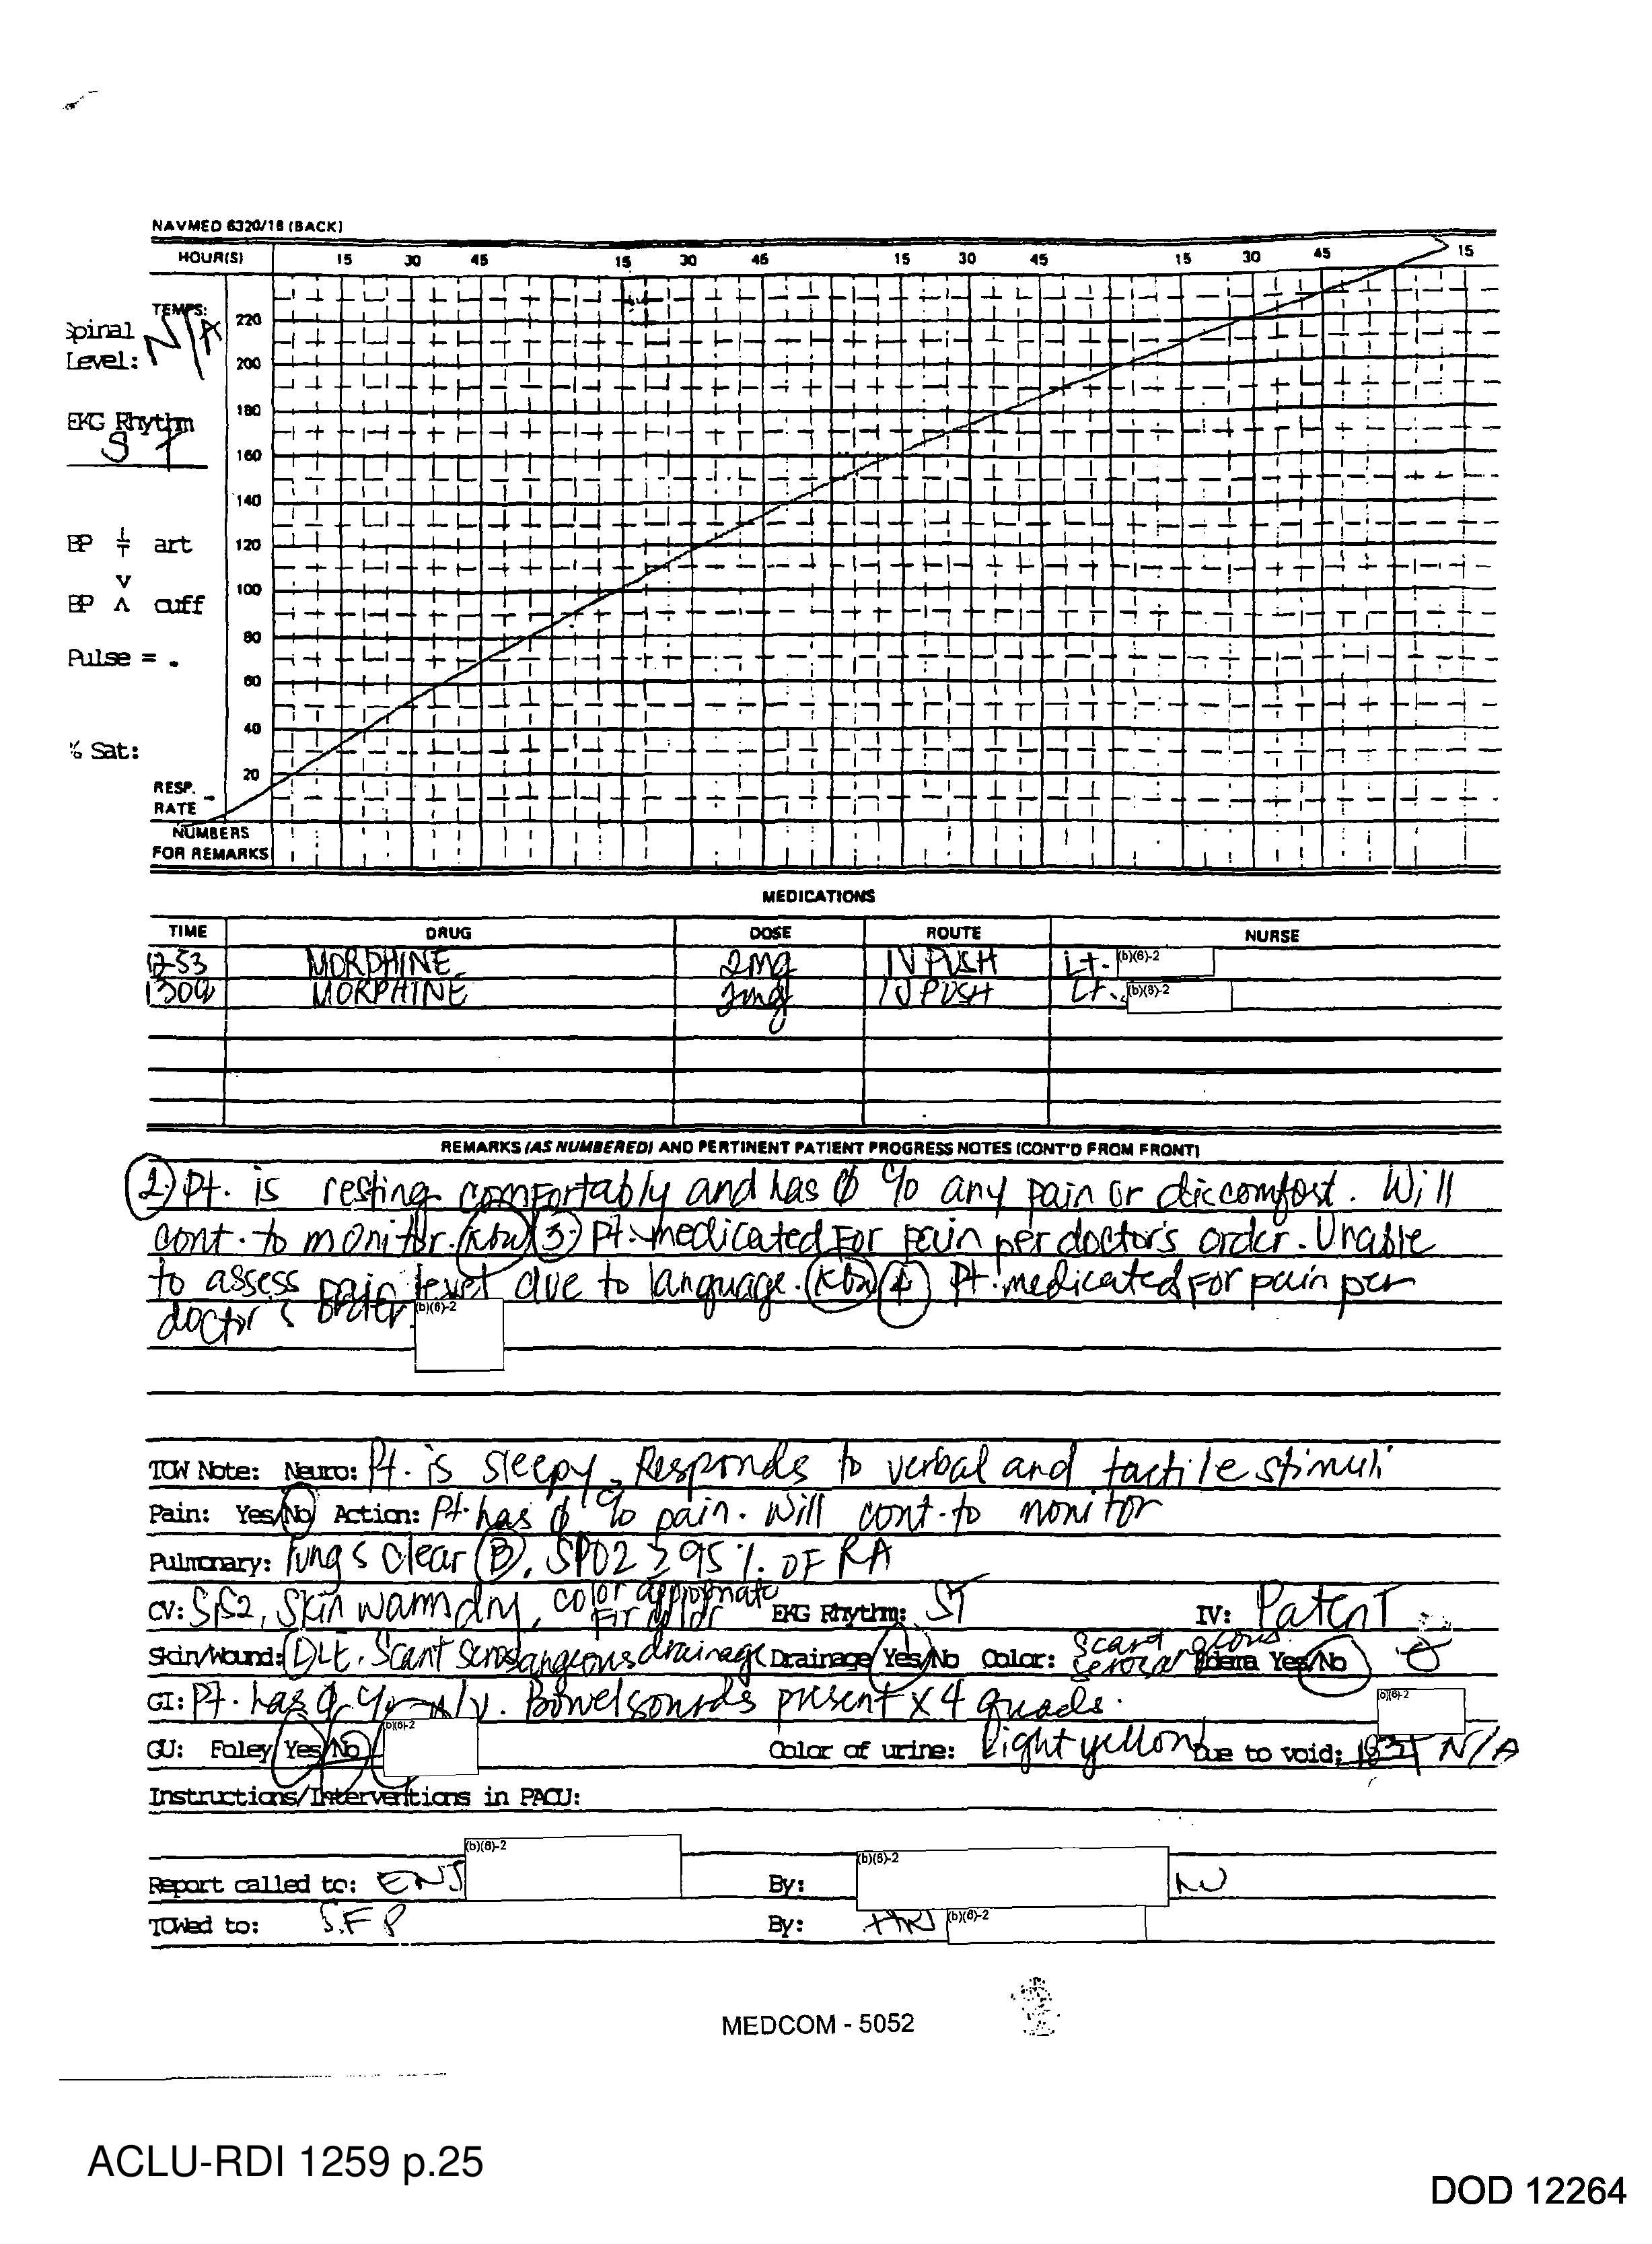 NAVMED 6320/16 (BACK)
HOUR(S) 15 30 45 15 30 45 15 30 45 15 30 45 15
TEMPS:
Spinal
Level: N/A
EKG Rhythm
ST
BP art
BP V Λ cuff
Pulse = .
% Sat:
220
200
180
160
140
120
100
80
60
40
20
RESP.
RATE
NUMBERS
FOR REMARKS
MEDICATIONS
TIME DRUG DOSE ROUTE NURSE
1253 MORPHINE 2mg IV PUSH Lt. (b)(6)-2
MORPHINE 2mg IV PUSH Lt. (b)(6)-2
REMARKS (AS NUMBERED) AND PERTINENT PATIENT PROGRESS NOTES (CONT'D FROM FRONT)
2) Pt. is resting comfortably and has ∅ c/o any pain or discomfort. Will
cont. to monitor. 3) Pt. medicated for pain per doctor's order. Unable
to assess pain level due to language. 4) Pt. medicated for pain per
doctor's order. (b)(6)-2
TOW Note: Neuro: Pt. is sleepy. Responds to verbal and tactile stimuli
Pain: Yes/No Action: Pt. has ∅ c/o pain. Will cont. to monitor
Pulmonary: lungs clear (B), SPO2 ≥ 95% OF RA
CV: S1S2, Skin warm dry, color appropriate EKG Rhythm: ST IV: Patent
Skin/Wound: LE. Scant drainage Drainage Yes/No Color: Edema Yes/No
GI: Pt. has ∅ c/o n/v. Bowel sounds present x 4 quads. (b)(6)-2
GU: Foley Yes/No (b)(6)-2 Color of urine: light yellow Due to void: N/A
Instructions/Interventions in PACU:
Report called to: ENS (b)(6)-2 By: (b)(6)-2
TOWed to: SFP By: (b)(6)-2
MEDCOM - 5052
ACLU-RDI 1259 p.25
DOD 12264